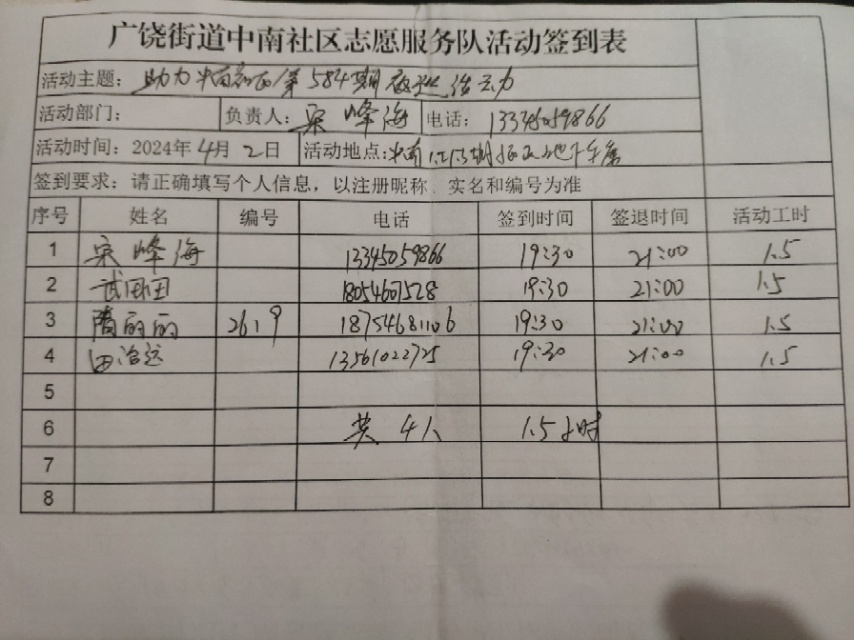 广饶街道中南社区志愿服务队活动签到表
活动主题：助力中南社区第584期夜巡活动
活动部门： 负责人：宋峰海 电话：13345059866
活动时间：2024年4月2日 活动地点：中南 期 地下车库
签到要求：请正确填写个人信息，以注册昵称、实名和编号为准
序号 姓名 编号 电话 签到时间 签退时间 活动工时
1 宋峰海 13345059866 19:30 21:00 1.5
2 武田田 18054601528 19:30 21:00 1.5
3 隋丽丽 2619 18754681106 19:30 21:00 1.5
4 田治运 13561022725 19:30 21:00 1.5
5
6 共4人 1.5小时
7
8